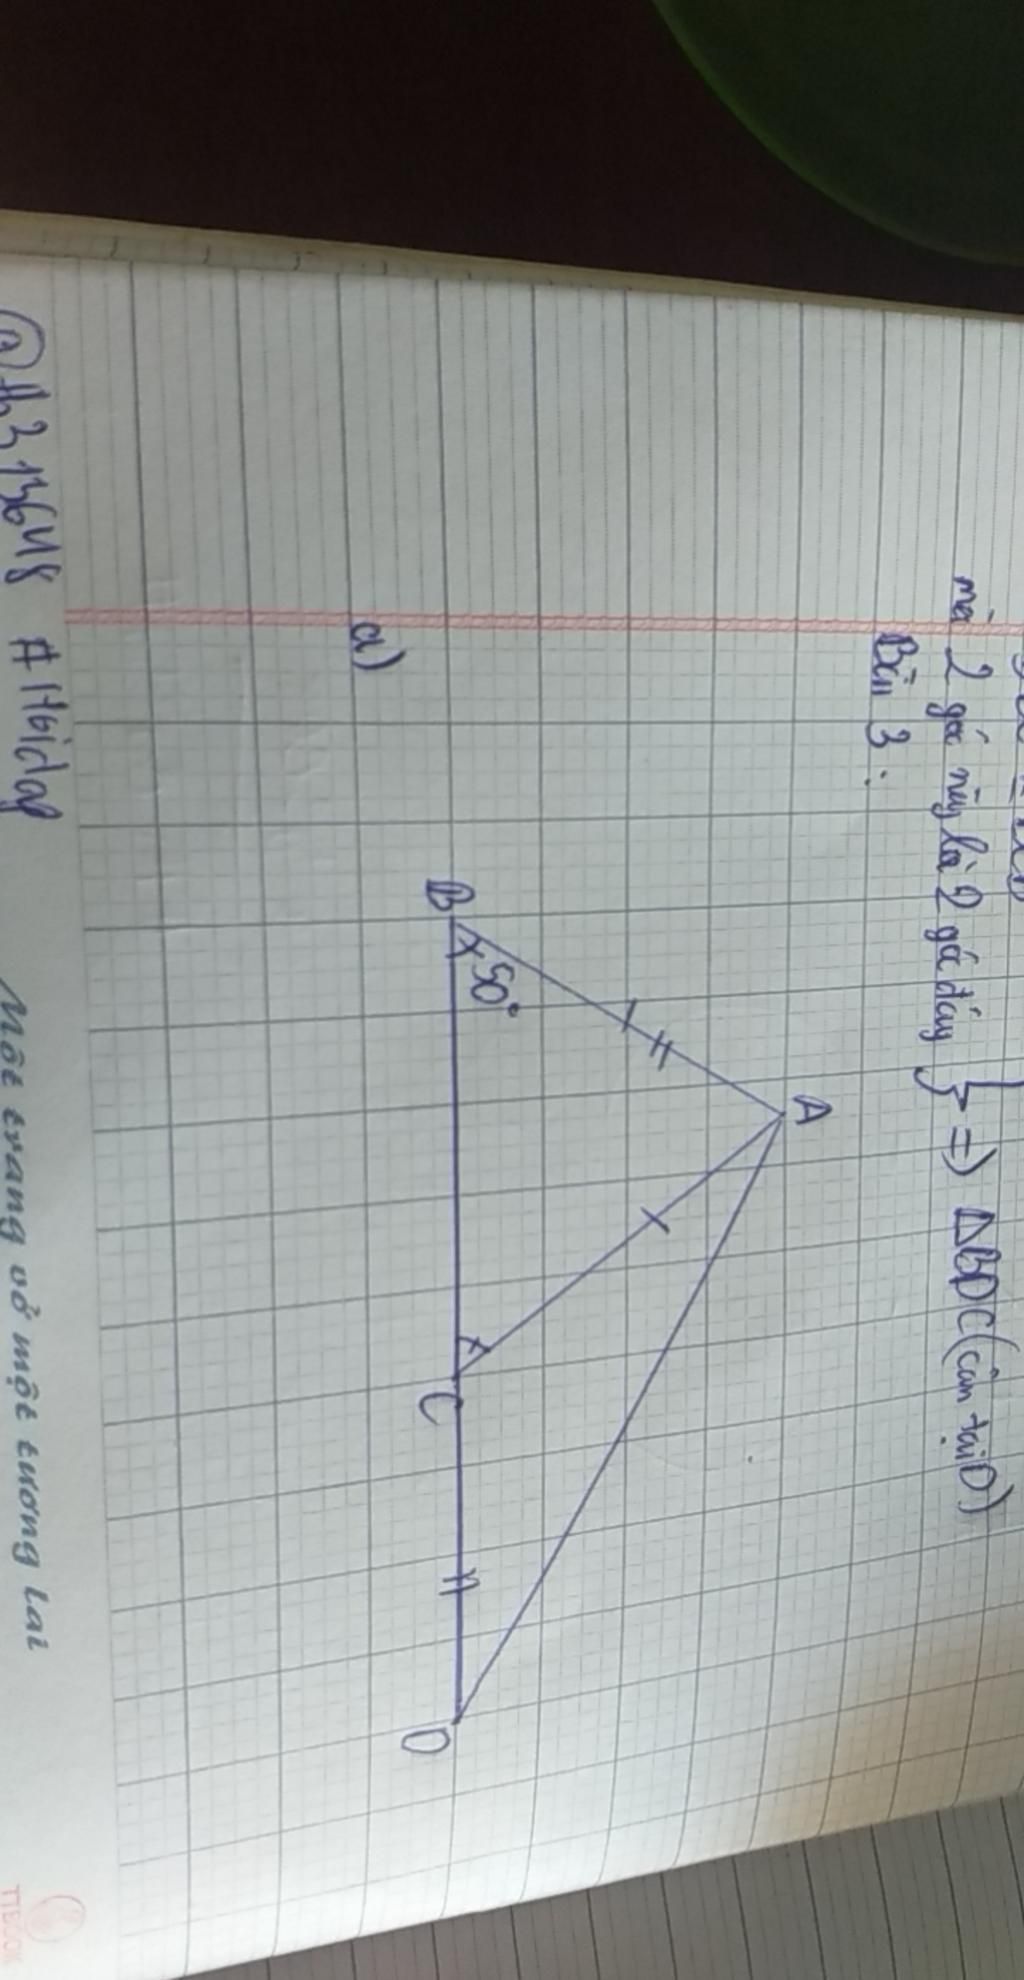 mà 2 góc này là 2 góc đáy } => ΔBDC (cân tại D)
Bài 3:
A
B 50°
C
D
a)
@th313648 #Hoidap
Một trang vở một tương lai